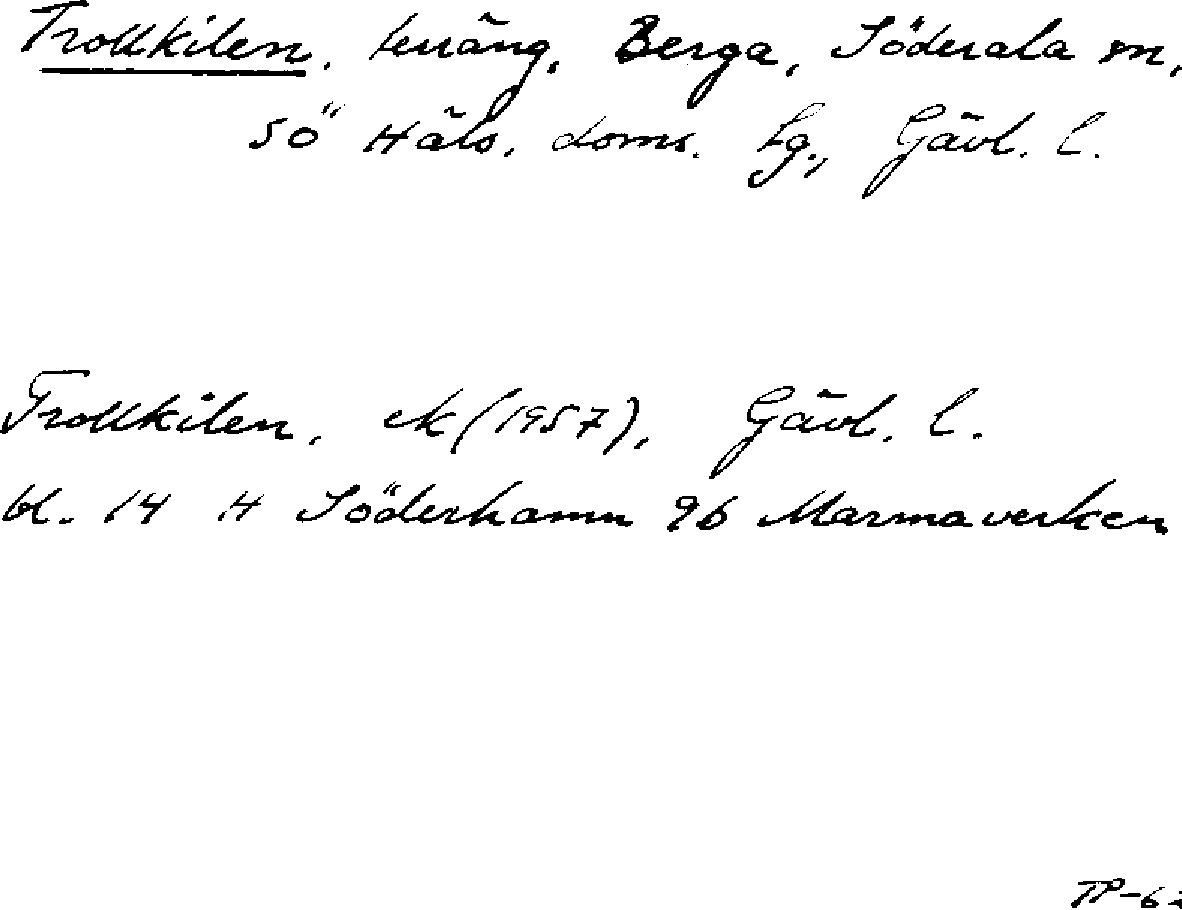 Trollkilen, terräng, Berga, Söderala sn,
sö Häls. doms. lg., Gävl. l.
Trollkilen, ek (1957), Gävl. l.
bl. 14 H Söderhamn 9b Marmaverken